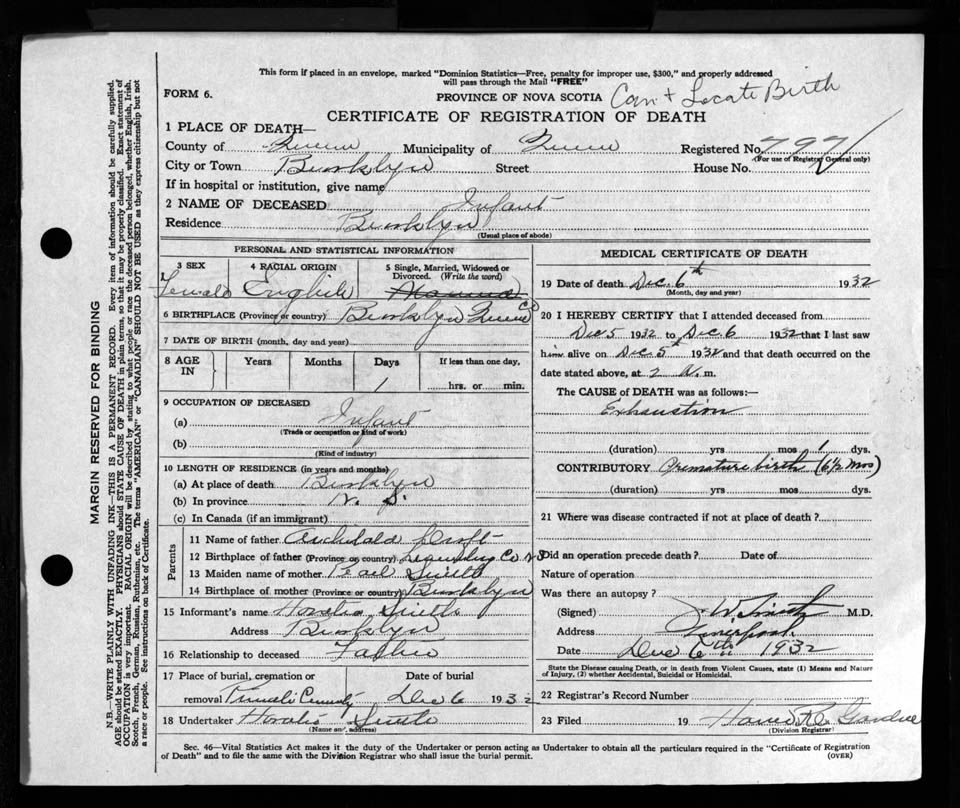 This form if placed in an envelope, marked "Dominion Statistics—Free, penalty for improper use, $300," and properly addressed
will pass through the Mail "FREE"
FORM 6.
PROVINCE OF NOVA SCOTIA Can't Locate Birth
CERTIFICATE OF REGISTRATION OF DEATH
1 PLACE OF DEATH—
County of Queens Municipality of Queens Registered No. 797
(For use of Registrar General only)
City or Town Brooklyn Street House No.
If in hospital or institution, give name
2 NAME OF DECEASED Infant
Residence Brooklyn
(Usual place of abode)
PERSONAL AND STATISTICAL INFORMATION
3 SEX
Female
4 RACIAL ORIGIN
English
5 Single, Married, Widowed or
Divorced. (Write the word)
6 BIRTHPLACE (Province or country) Brooklyn Queens Co
7 DATE OF BIRTH (month, day and year)
8 AGE IN Years Months Days If less than one day,
1 hrs. or min.
9 OCCUPATION OF DECEASED
(a) Infant
(Trade or occupation or kind of work)
(b)
(Kind of industry)
10 LENGTH OF RESIDENCE (in years and months)
(a) At place of death Brooklyn
(b) In province N. S.
(c) In Canada (if an immigrant)
Parents
11 Name of father Archibald
12 Birthplace of father (Province or country) Co N S
13 Maiden name of mother Pearl Smith
14 Birthplace of mother (Province or country) Brooklyn
15 Informant's name Horatio Smith
Address Brooklyn
16 Relationship to deceased Father
17 Place of burial, cremation or Date of burial
removal Dec 6 1932
18 Undertaker Horatio Smith
(Name and address)
MEDICAL CERTIFICATE OF DEATH
19 Date of death Dec. 6th 1932
(Month, day and year)
20 I HEREBY CERTIFY that I attended deceased from
Dec 5 1932 to Dec 6 1932 that I last saw
him alive on Dec. 5th 1932 and that death occurred on the
date stated above, at 2 m.
The CAUSE OF DEATH was as follows:—
Exhaustion
(duration) yrs mos 1 dys.
CONTRIBUTORY Premature birth (6½ mos)
(duration) yrs mos dys.
21 Where was disease contracted if not at place of death?
Did an operation precede death? Date of
Nature of operation
Was there an autopsy?
(Signed) J W Smith M.D.
Address Liverpool
Date Dec 6th 1932
State the Disease causing Death, or in death from Violent Causes, state (1) Means and Nature
of Injury, (2) whether Accidental, Suicidal or Homicidal.
22 Registrar's Record Number
23 Filed 19
(Division Registrar)
Sec. 46—Vital Statistics Act makes it the duty of the Undertaker or person acting as Undertaker to obtain all the particulars required in the "Certificate of Registration
of Death" and to file the same with the Division Registrar who shall issue the burial permit. (OVER)
MARGIN RESERVED FOR BINDING
N.B.—WRITE PLAINLY WITH UNFADING INK—THIS IS A PERMANENT RECORD. Every item of information should be carefully supplied.
AGE should be stated EXACTLY. PHYSICIANS should STATE CAUSE OF DEATH in plain terms, so that it may be properly classified. Exact statement of
OCCUPATION is very important. RACIAL ORIGIN will be described by stating to what people or race the deceased person belonged, whether English, Irish,
Scotch, French, German, Russian, Ruthenian, etc. The terms "AMERICAN" or "CANADIAN" SHOULD NOT BE USED as they express citizenship but not
a race or people. See instructions on back of Certificate.